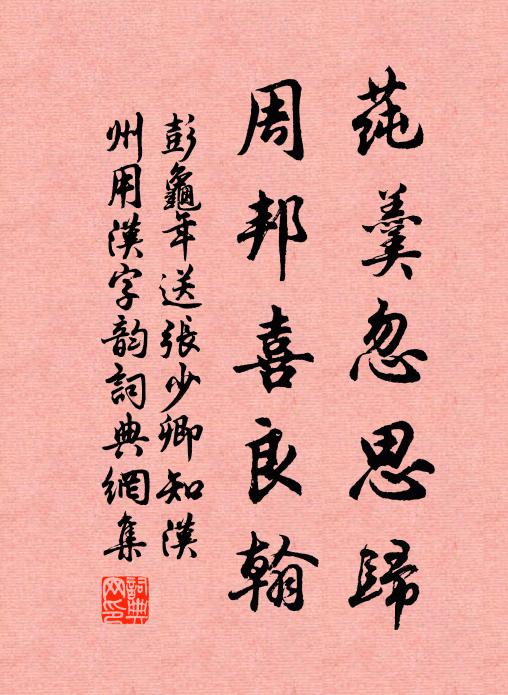 莼羹忽思歸
周邦喜良翰
彭龜年送張少卿知漢
州用漢字韵詞典網集
詞典网印